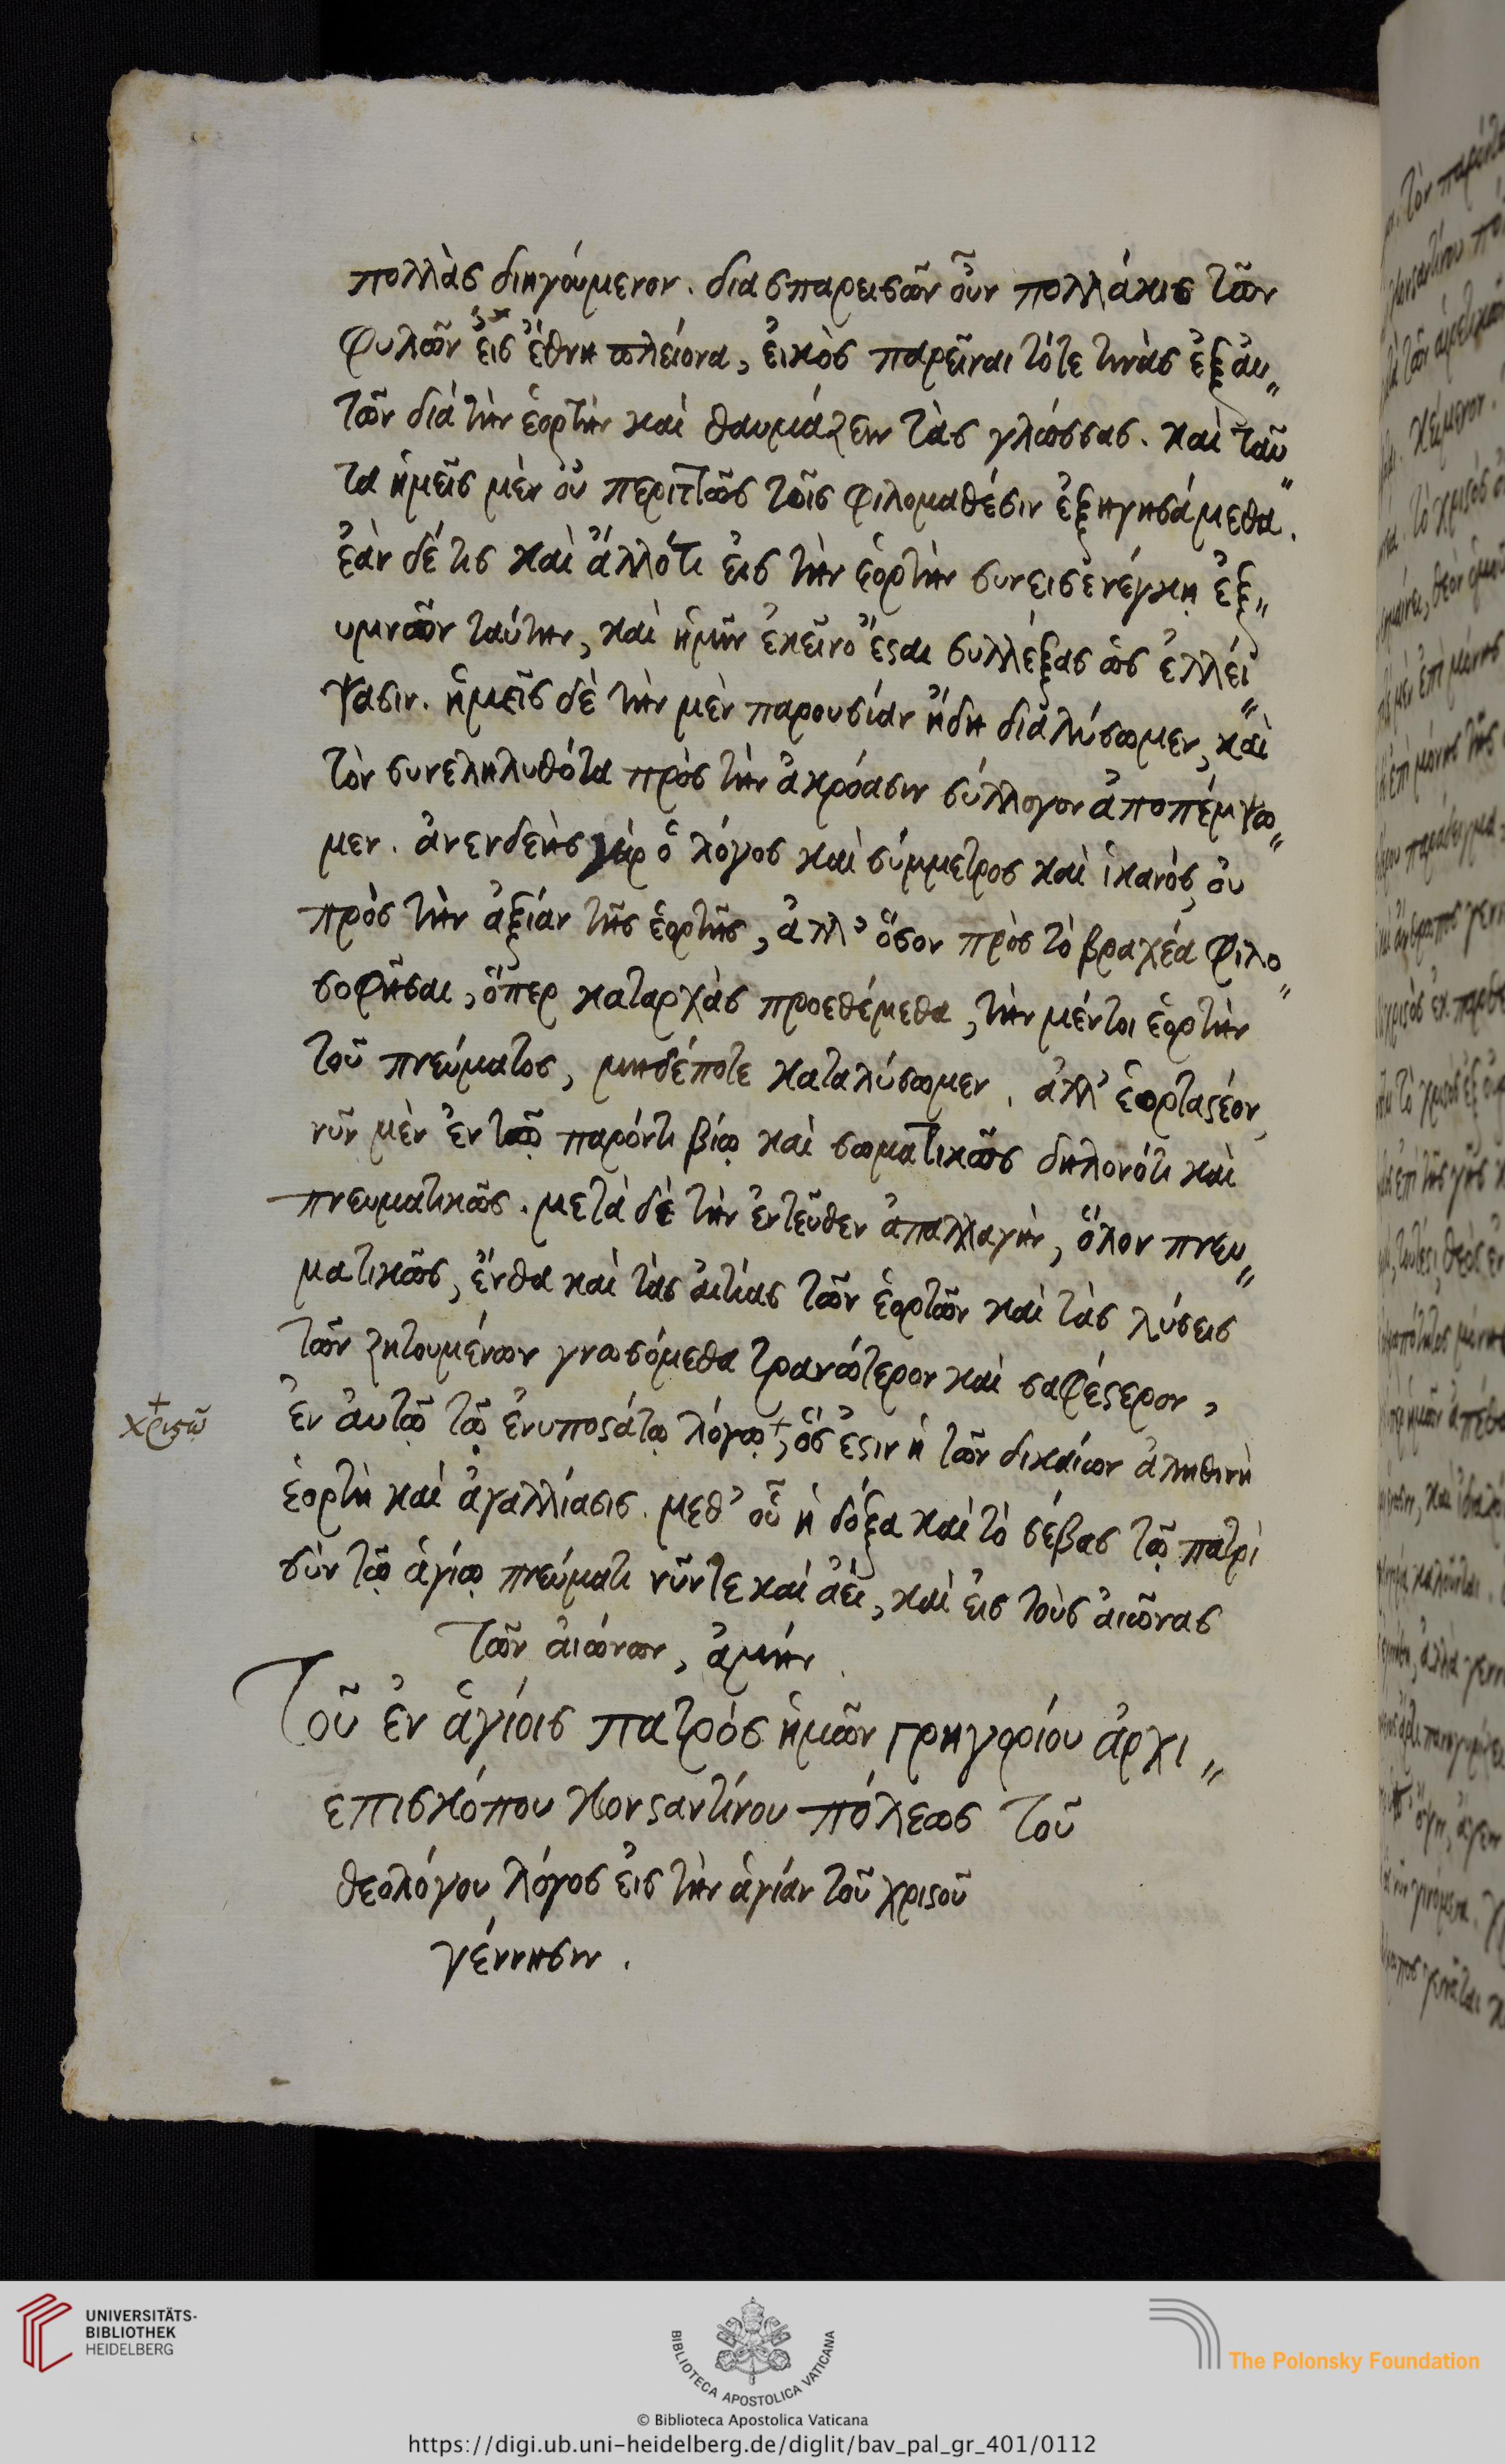 πολλὰς διηγούμενον. διασπαρεισῶν οὖν πολλάκις τῶν
φυλῶν εἰς ἔθνη πλείονα, εἰκὸς παρεῖναι τότε τινὰς ἐξ αυ〃
τῶν διὰ τὴν ἑορτὴν καὶ θαυμάζειν τὰς γλώσσας. καὶ ταῦ〃
τα ἡμεῖς μὲν οὐ περιττῶς τοῖς φιλομαθέσιν ἐξηγησάμεθα.
ἐὰν δέ τις καὶ ἄλλότι εἰς τὴν ἑορτὴν συνεισενέγκῃ ἐξ〃
υμνῶν ταύτην, καὶ ἡμῖν ἐκεῖνο ἔσται συλλέξας ὡς ἐλλεί〃
ψασιν. ἡμεῖς δὲ τὴν μὲν παρουσίαν ἤδη διαλύσωμεν, καὶ
τὸν συνεληλυθότα πρὸς τὴν ἀκρόασιν σύλλογον ἀποπέμψω〃
μεν. ἀνενδεὴς γὰρ ὁ λόγος καὶ σύμμετρος καὶ ἱκανός, οὐ
πρὸς τὴν ἀξίαν τῆς ἑορτῆς, ἀλλ' ὅσον πρὸς τὸ βραχέα φιλο〃
σοφῆσαι, ὅπερ καταρχὰς προεθέμεθα, τὴν μέντοι ἑορτὴν
τοῦ πνεύματος, μηδέποτε καταλύσωμεν. ἀλλ' ἑορταστέον,
νῦν μὲν ἐν τῷ παρόντι βίῳ καὶ σωματικῶς δηλονότι καὶ
πνευματικῶς. μετὰ δὲ τὴν ἐντεῦθεν ἀπαλλαγὴν, ὅλον πνευ〃
ματικῶς, ἔνθα καὶ τὰς αἰτίας τῶν ἑορτῶν καὶ τὰς λύσεις
τῶν ζητουμένων γνωσόμεθα τρανώτερον καὶ σαφέστερον,
ἐν αὐτῷ τῷ ἐνυποστάτῳ λόγῳ+, ὅς ἐστιν ἡ τῶν δικαίων ἀληθινὴ
+ χριστῷ
ἑορτὴ καὶ ἀγαλλίασις. μεθ' οὗ ἡ δόξα καὶ τὸ σέβας τῷ πατρὶ
σὺν τῷ ἁγίῳ πνεύματι νῦν τε καὶ ἀεὶ, καὶ εἰς τοὺς αἰῶνας
τῶν αἰώνων, ἀμήν.
Τοῦ ἐν ἁγίοις πατρὸς ἡμῶν γρηγορίου ἀρχι〃
επισκόπου κονσταντίνου πόλεως τοῦ
θεολόγου λόγος εἰς τὴν ἁγίαν τοῦ χριστοῦ
γέννησιν.
UNIVERSITÄTS-
BIBLIOTHEK
HEIDELBERG
BIBLIOTECA APOSTOLICA VATICANA
The Polonsky Foundation
© Biblioteca Apostolica Vaticana
https://digi.ub.uni-heidelberg.de/diglit/bav_pal_gr_401/0112